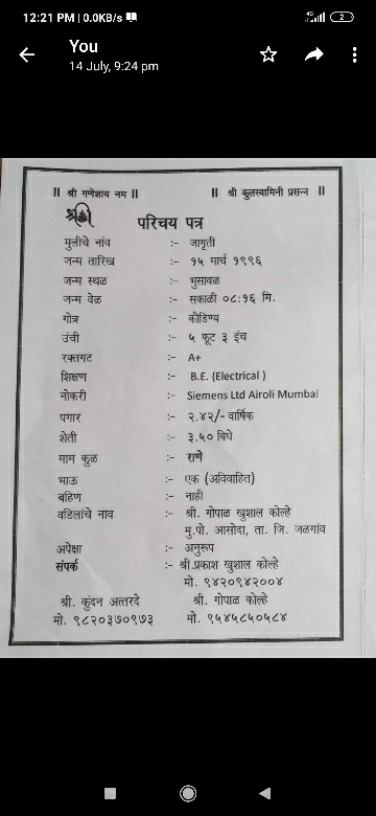 12:21 PM | 0.0KB/s
2
You
14 July, 9:24 pm
|| श्री गणेशाय नम || || श्री कुलस्वामिनी प्रसन्न ||
श्री
परिचय पत्र
मुलीचे नांव :- जागृती
जन्म तारिख :- १५ मार्च १९९६
जन्म स्थळ :- भुसावळ
जन्म वेळ :- सकाळी ०८:१६ मि.
गोत्र :- कौडिण्य
उंची :- ५ फूट ३ इंच
रक्तगट :- A+
शिक्षण :- B.E. (Electrical )
नोकरी :- Siemens Ltd Airoli Mumbai
पगार :- २.४२/- वार्षिक
शेती :- ३.५० बिघे
माम कुळ :- राणे
भाऊ :- एक (अविवाहित)
बहिण :- नाही
वडिलांचे नाव :- श्री. गोपाळ खुशाल कोल्हे
मु.पो. आसोदा, ता. जि. जळगांव
अपेक्षा :- अनुरूप
संपर्क :- श्री.प्रकाश खुशाल कोल्हे
मो. ९४२०९४२००४
श्री. कुंदन अत्तरदे श्री. गोपाळ कोल्हे
मो. ९८२०३७०९७३ मो. ९५४५८५०५८४